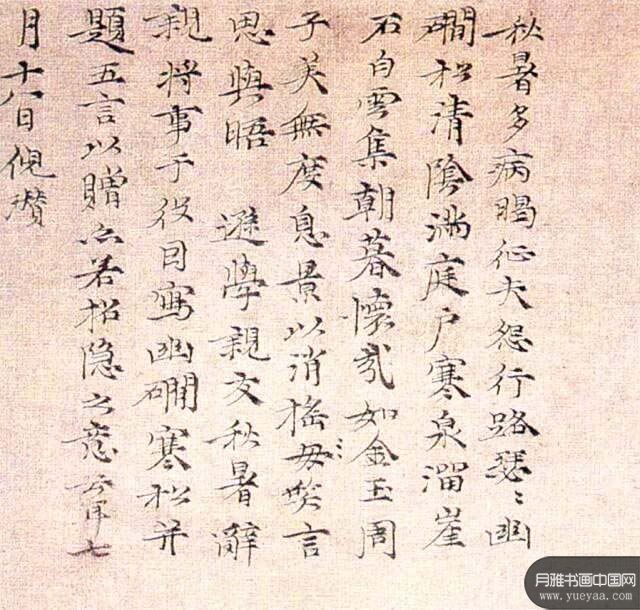 秋暑多病暍征夫怨行路瑟〻幽
磵松清陰滿庭戶寒泉溜崖
石白雲集朝暮懷哉如金玉周
子美無度息景以消搖毋〻笑言
思與晤 遜學親友秋暑辭
親將事于役因寫幽磵寒松并
題五言以贈亦若招隱之意云耳七
月十八日倪瓚
月雅书画中国网
www.yueyaa.com